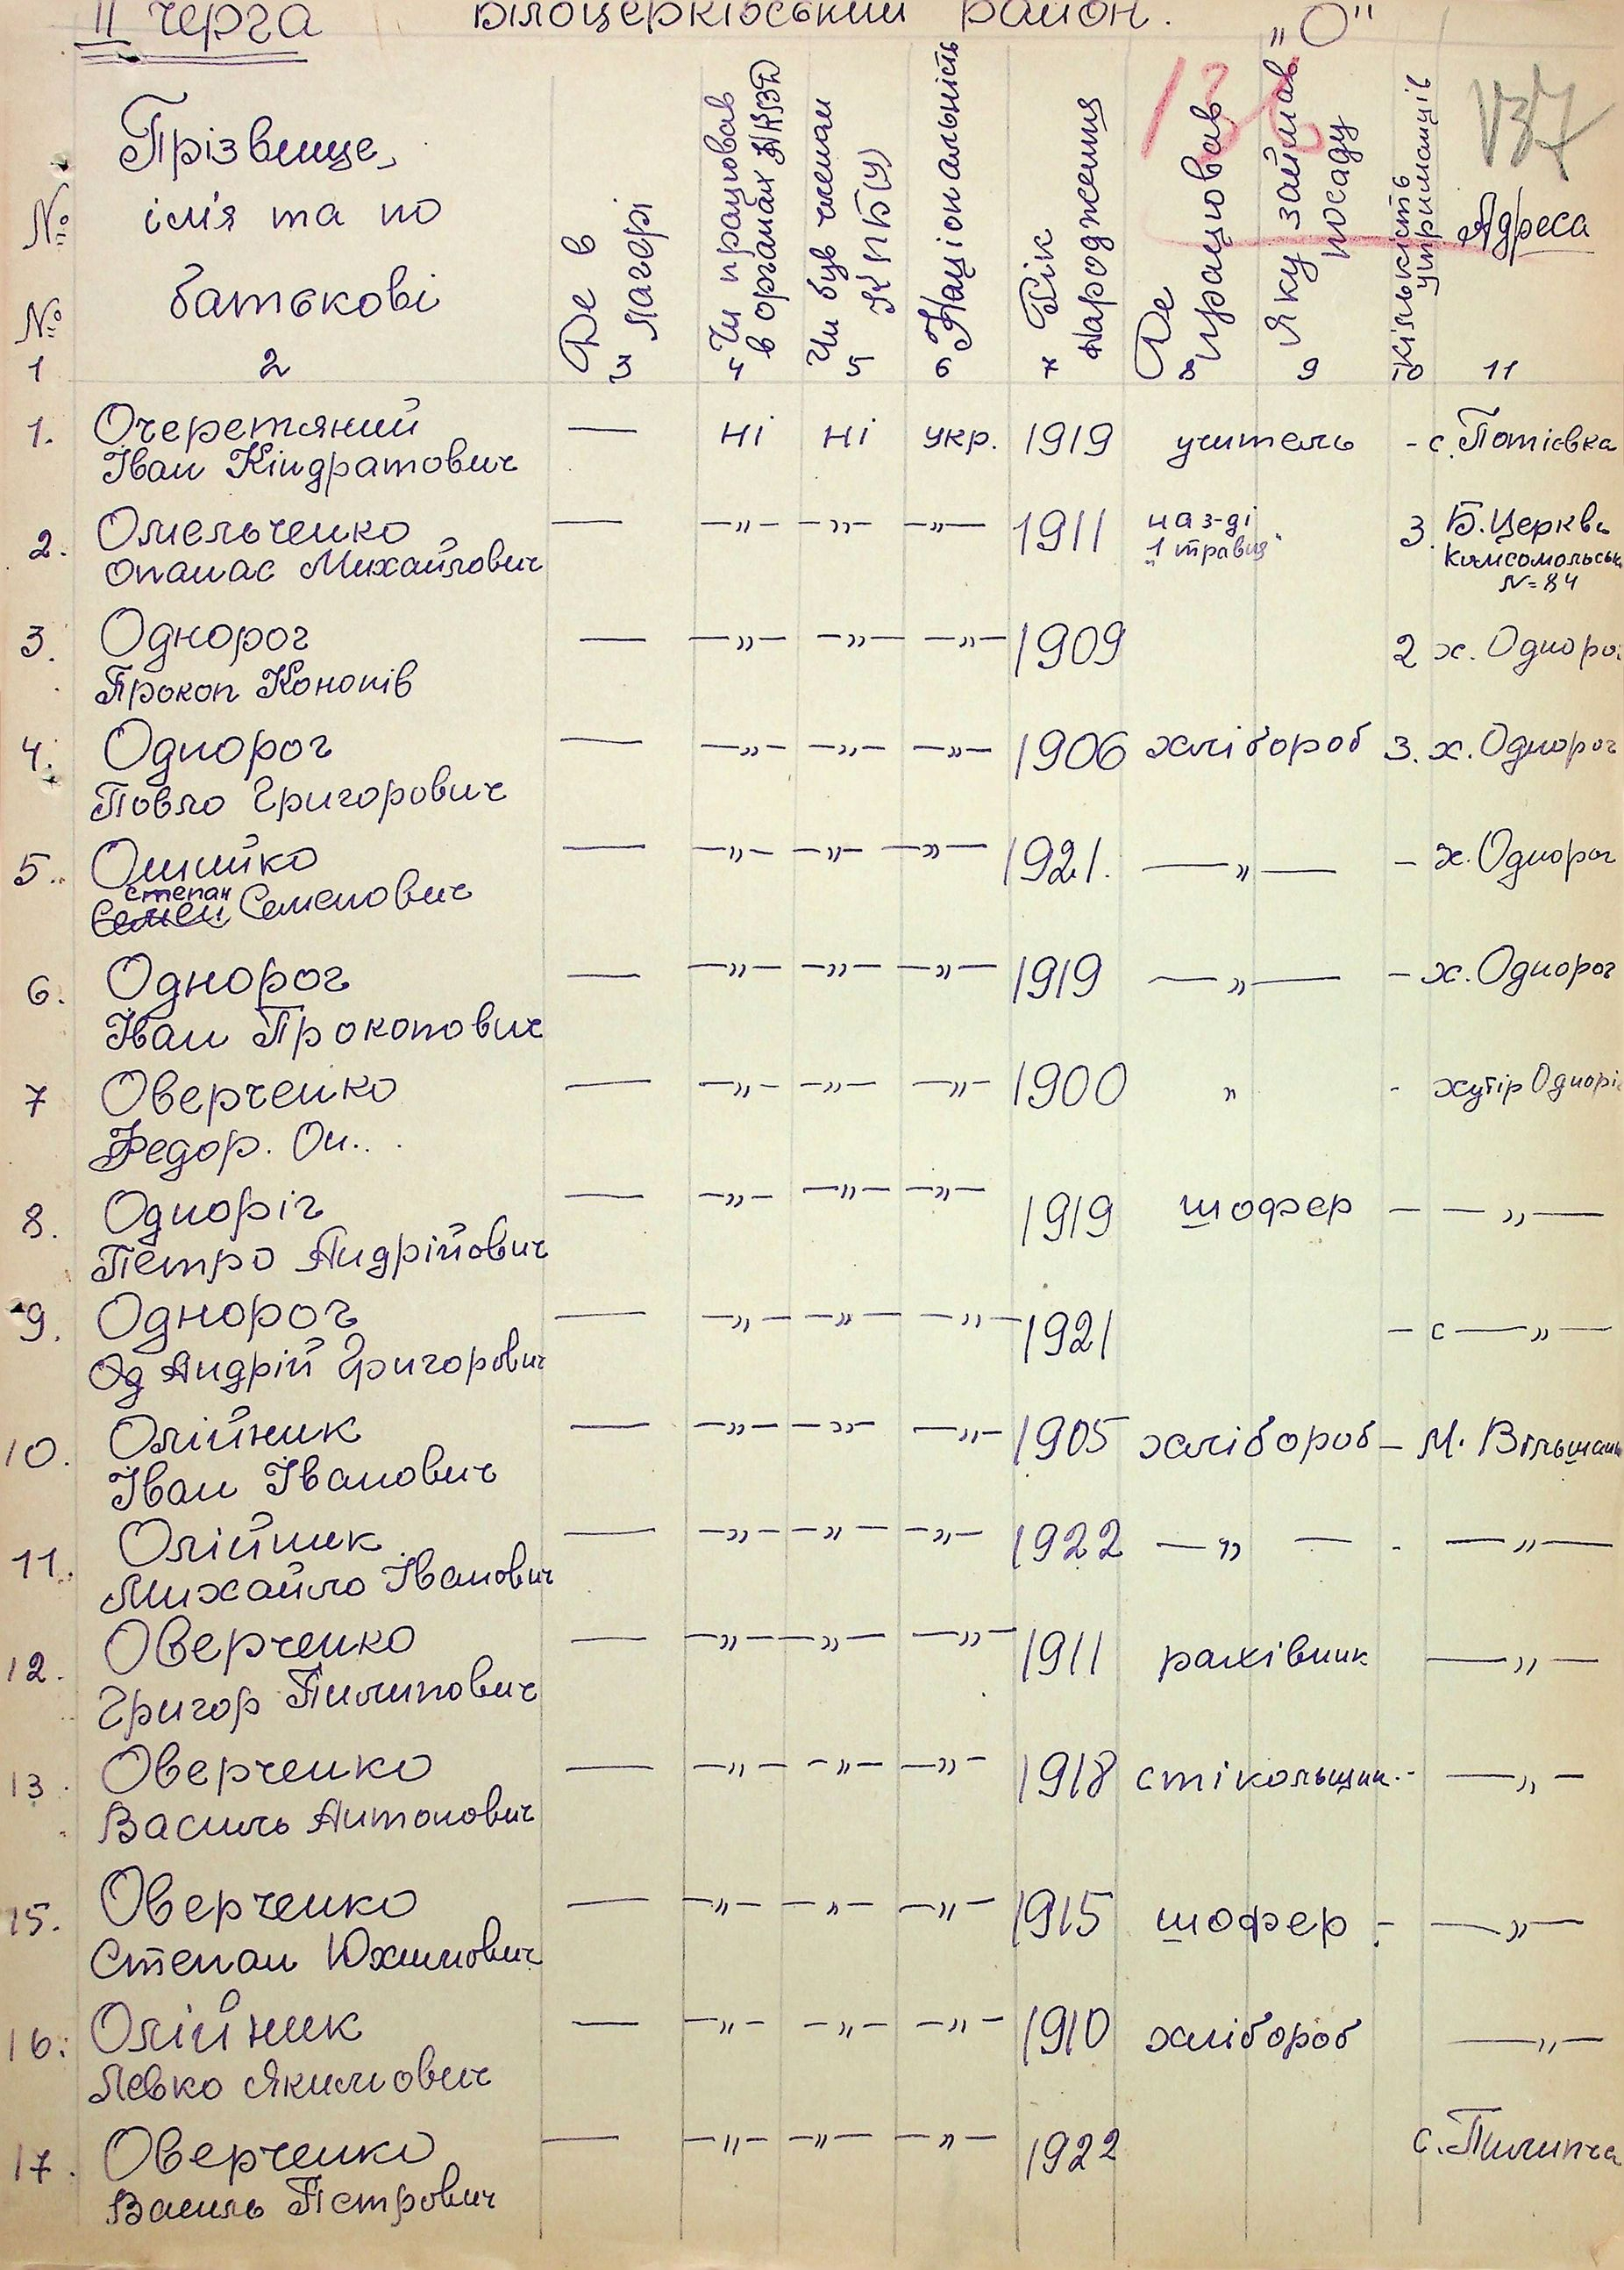 II черга Білоцерківський район. „О"
№ №
Прізвище,
ім'я та по
батькові
Де в
лагері
Чи працював
в органах НКВД
Чи був членом
КПБ(у)
Національність
Рік
народження
Де
працював
Яку займав
посаду
Кількість
утриманців
137
Адреса
1 2 3 4 5 6 7 8 9 10 11
1. Очеретяний — ні ні укр. 1919 учитель - с. Потієвка
Іван Кіндратович
2. Омельченко — —„— —„— —„— 1911 на з-ді 3. Б. Церква
Опанас Михайлович „1 травня" Комсомольськ
N=84
3. Однорог — —„— —„— —„— 1909 2 х. Однорог
Прокоп Кононів
4. Однорог — —„— —„— —„— 1906 хлібороб 3. х. Однорог
Повло Григорович
5. Ошийко — —„— —„— —„— 1921. —„— – х. Однорог
степан
Семен Семенович
6. Однорог — —„— —„— —„— 1919 —„— – х. Однорог
Іван Прокопович
7 Оверченко — —„— —„— —„— 1900 „ - хутір Однорі
Федор. Он..
8. Одноріг — —„— —„— —„— 1919 шофер — —„—
Петро Андрійович
9. Однорог — —„— —„— —„— 1921 – с —„—
Од Андрій Григорович
10. Олійник — —„— —„— —„— 1905 хлібороб – М. Вільшанк
Іван Іванович
11. Олійник — —„— —„— —„— 1922 —„— - —„—
Михайло Іванович
12. Оверченко — —„— —„— —„— 1911 рахівник —„—
Григор Пилипович
13. Оверченко — —„— —„— —„— 1918 стікольщик. - —„—
Василь Антонович
15. Оверченко — —„— —„— —„— 1915 шофер - —„—
Степан Юхимович
16. Олійник — —„— —„— —„— 1910 хлібороб —„—
Левко Якимович
17. Оверченко — —„— —„— —„— 1922 с. Пилипча
Василь Петрович